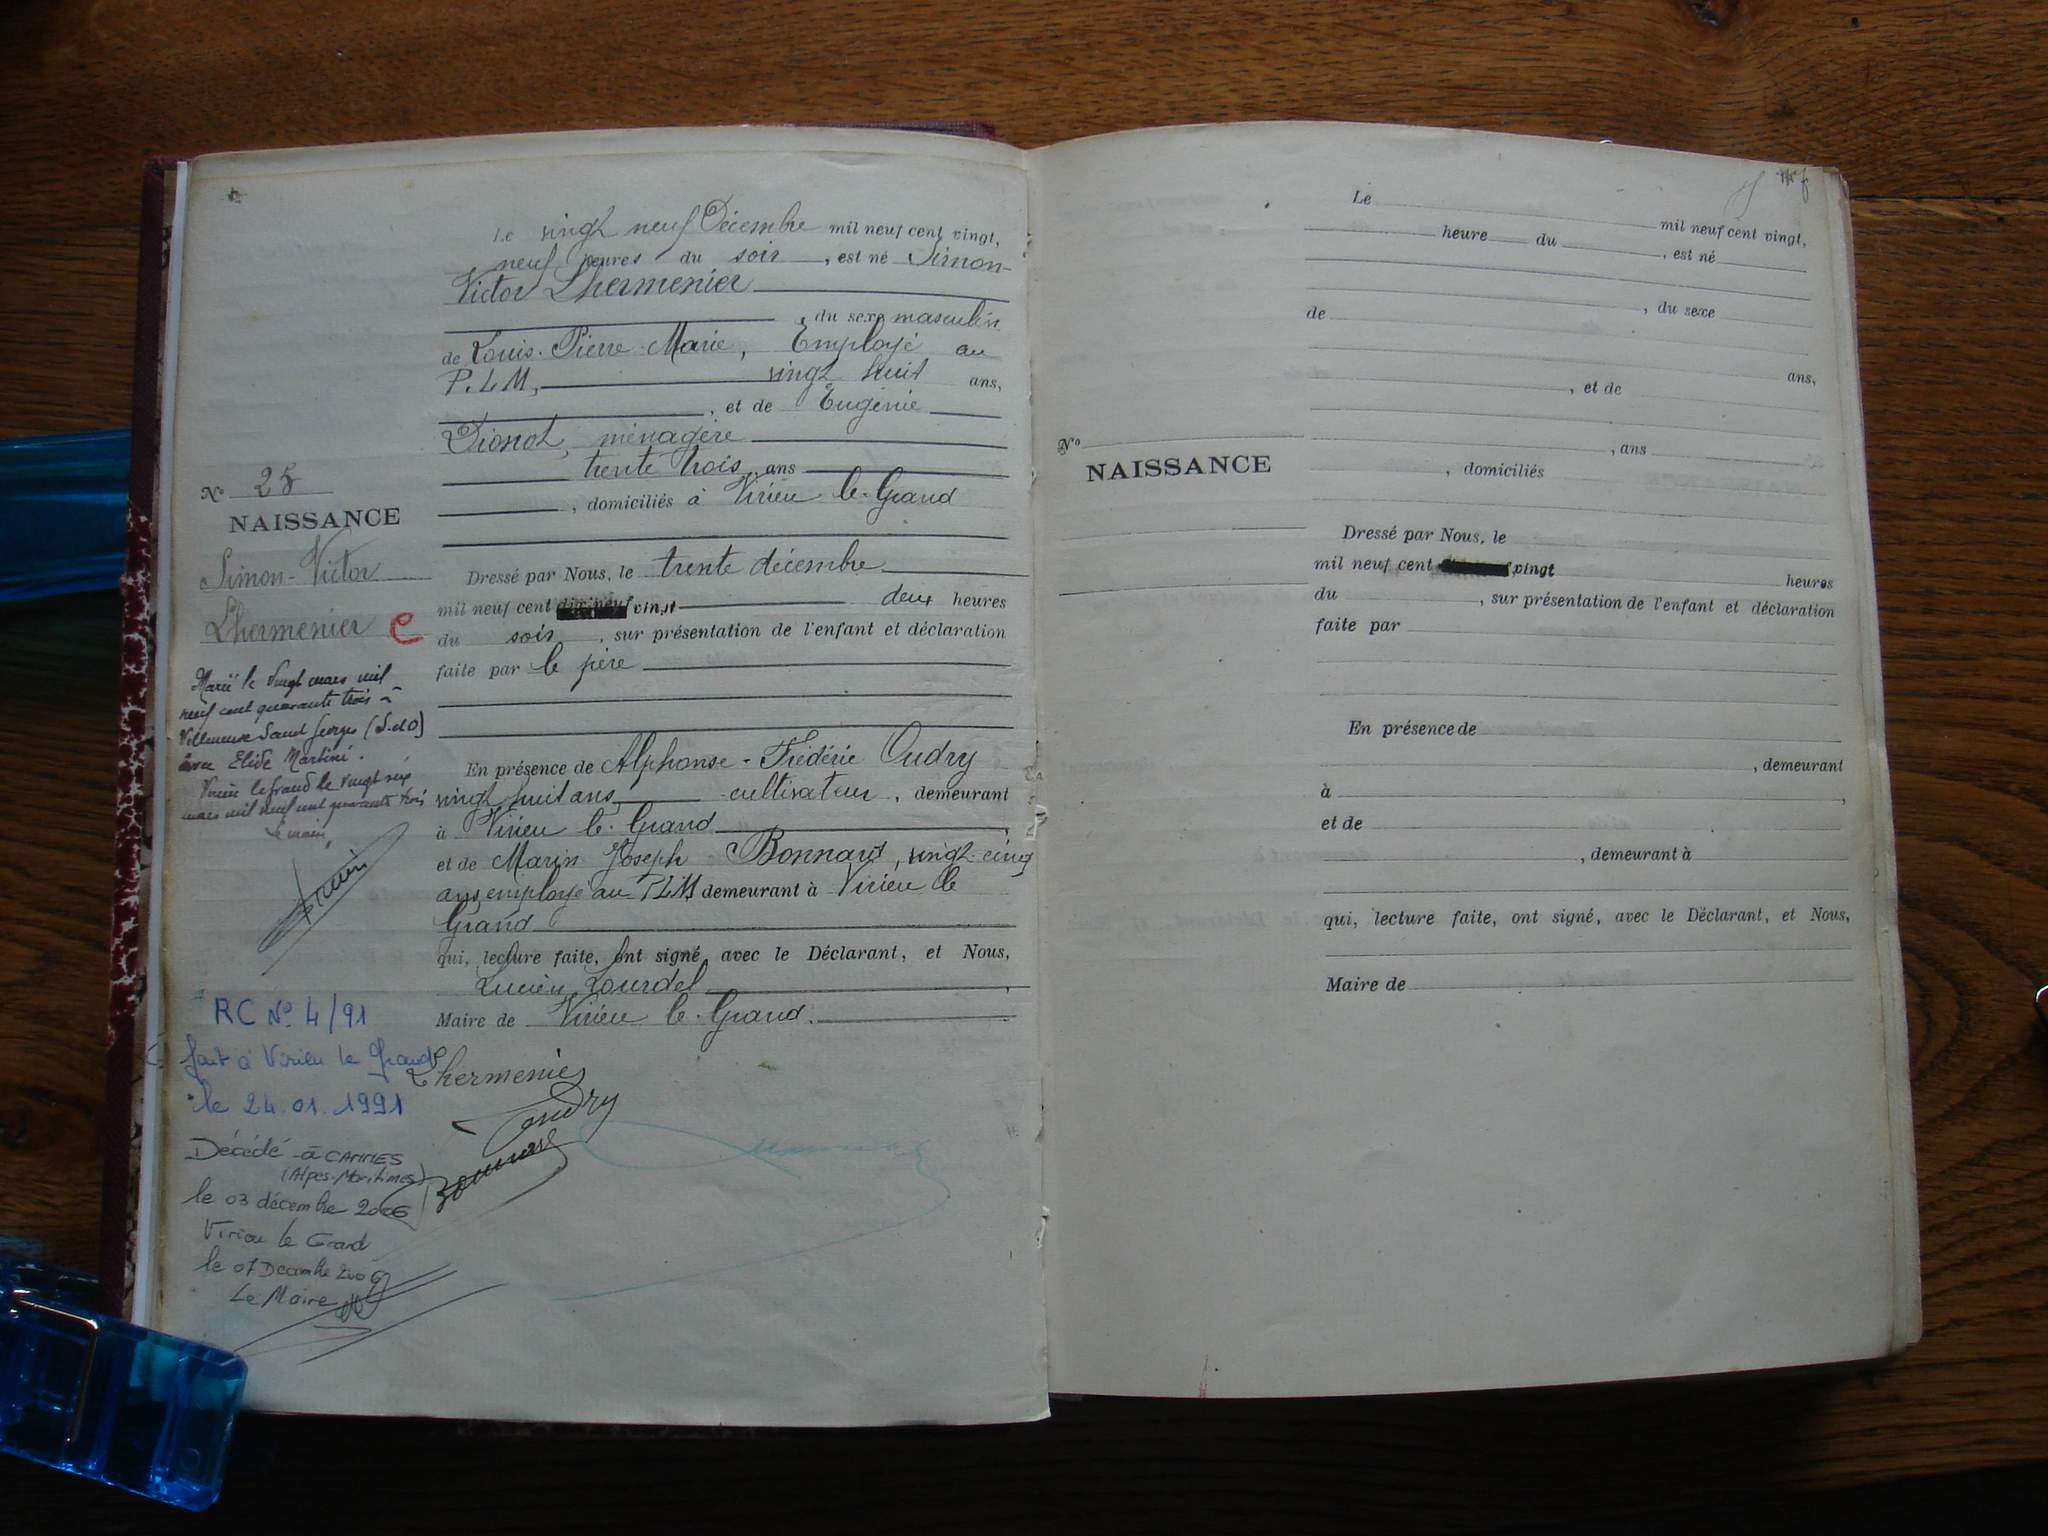 Le vingt neuf Décembre mil neuf cent vingt,
neuf heures du soir, est né Simon-
Victor Lhermenier
, du sexe masculin
de Louis-Pierre-Marie, Employé au
P.L.M, vingt huit ans,
, et de Eugénie
Pionot, ménagère
trente trois ans
, domiciliés à Virieu le-Grand
Dressé par Nous, le trente décembre
mil neuf cent vingt deux heures
du soir, sur présentation de l'enfant et déclaration
faite par le père
En présence de Alphonse-Frédéric Oudry
vingt huit ans cultivateur, demeurant
à Virieu le-Grand,
et de Marin Joseph Bonnard, vingt-cinq
ans, employé au PLM, demeurant à Virieu le
Grand
qui, lecture faite, ont signé, avec le Déclarant, et Nous,
Lucien Lourdel,
Maire de Virieu le-Grand.
Lhermenier
Oudry
Bonnard
No 25
NAISSANCE
Simon-Victor
Lhermenier C
Marié le vingt mars mil
neuf cent quarante trois à
Villeneuve Saint Georges (S.et O)
avec Elide Martini.
Virieu le grand le vingt six
mars mil neuf cent quarante trois
Le maire,
RC No 4/91
fait à Virieu le Grand
le 24.01.1991
Décédé à CANNES
(Alpes-Maritimes)
le 03 décembre 2006
Virieu le Grand
le 07 Décembre 2006
Le Maire
Le mil neuf cent vingt,
heure du , est né
, du sexe
de
ans,
, et de
, ans
, domiciliés
No
NAISSANCE
Dressé par Nous, le
mil neuf cent vingt heures
du , sur présentation de l'enfant et déclaration
faite par
En présence de
, demeurant
à ,
et de
, demeurant à
qui, lecture faite, ont signé, avec le Déclarant, et Nous,
Maire de